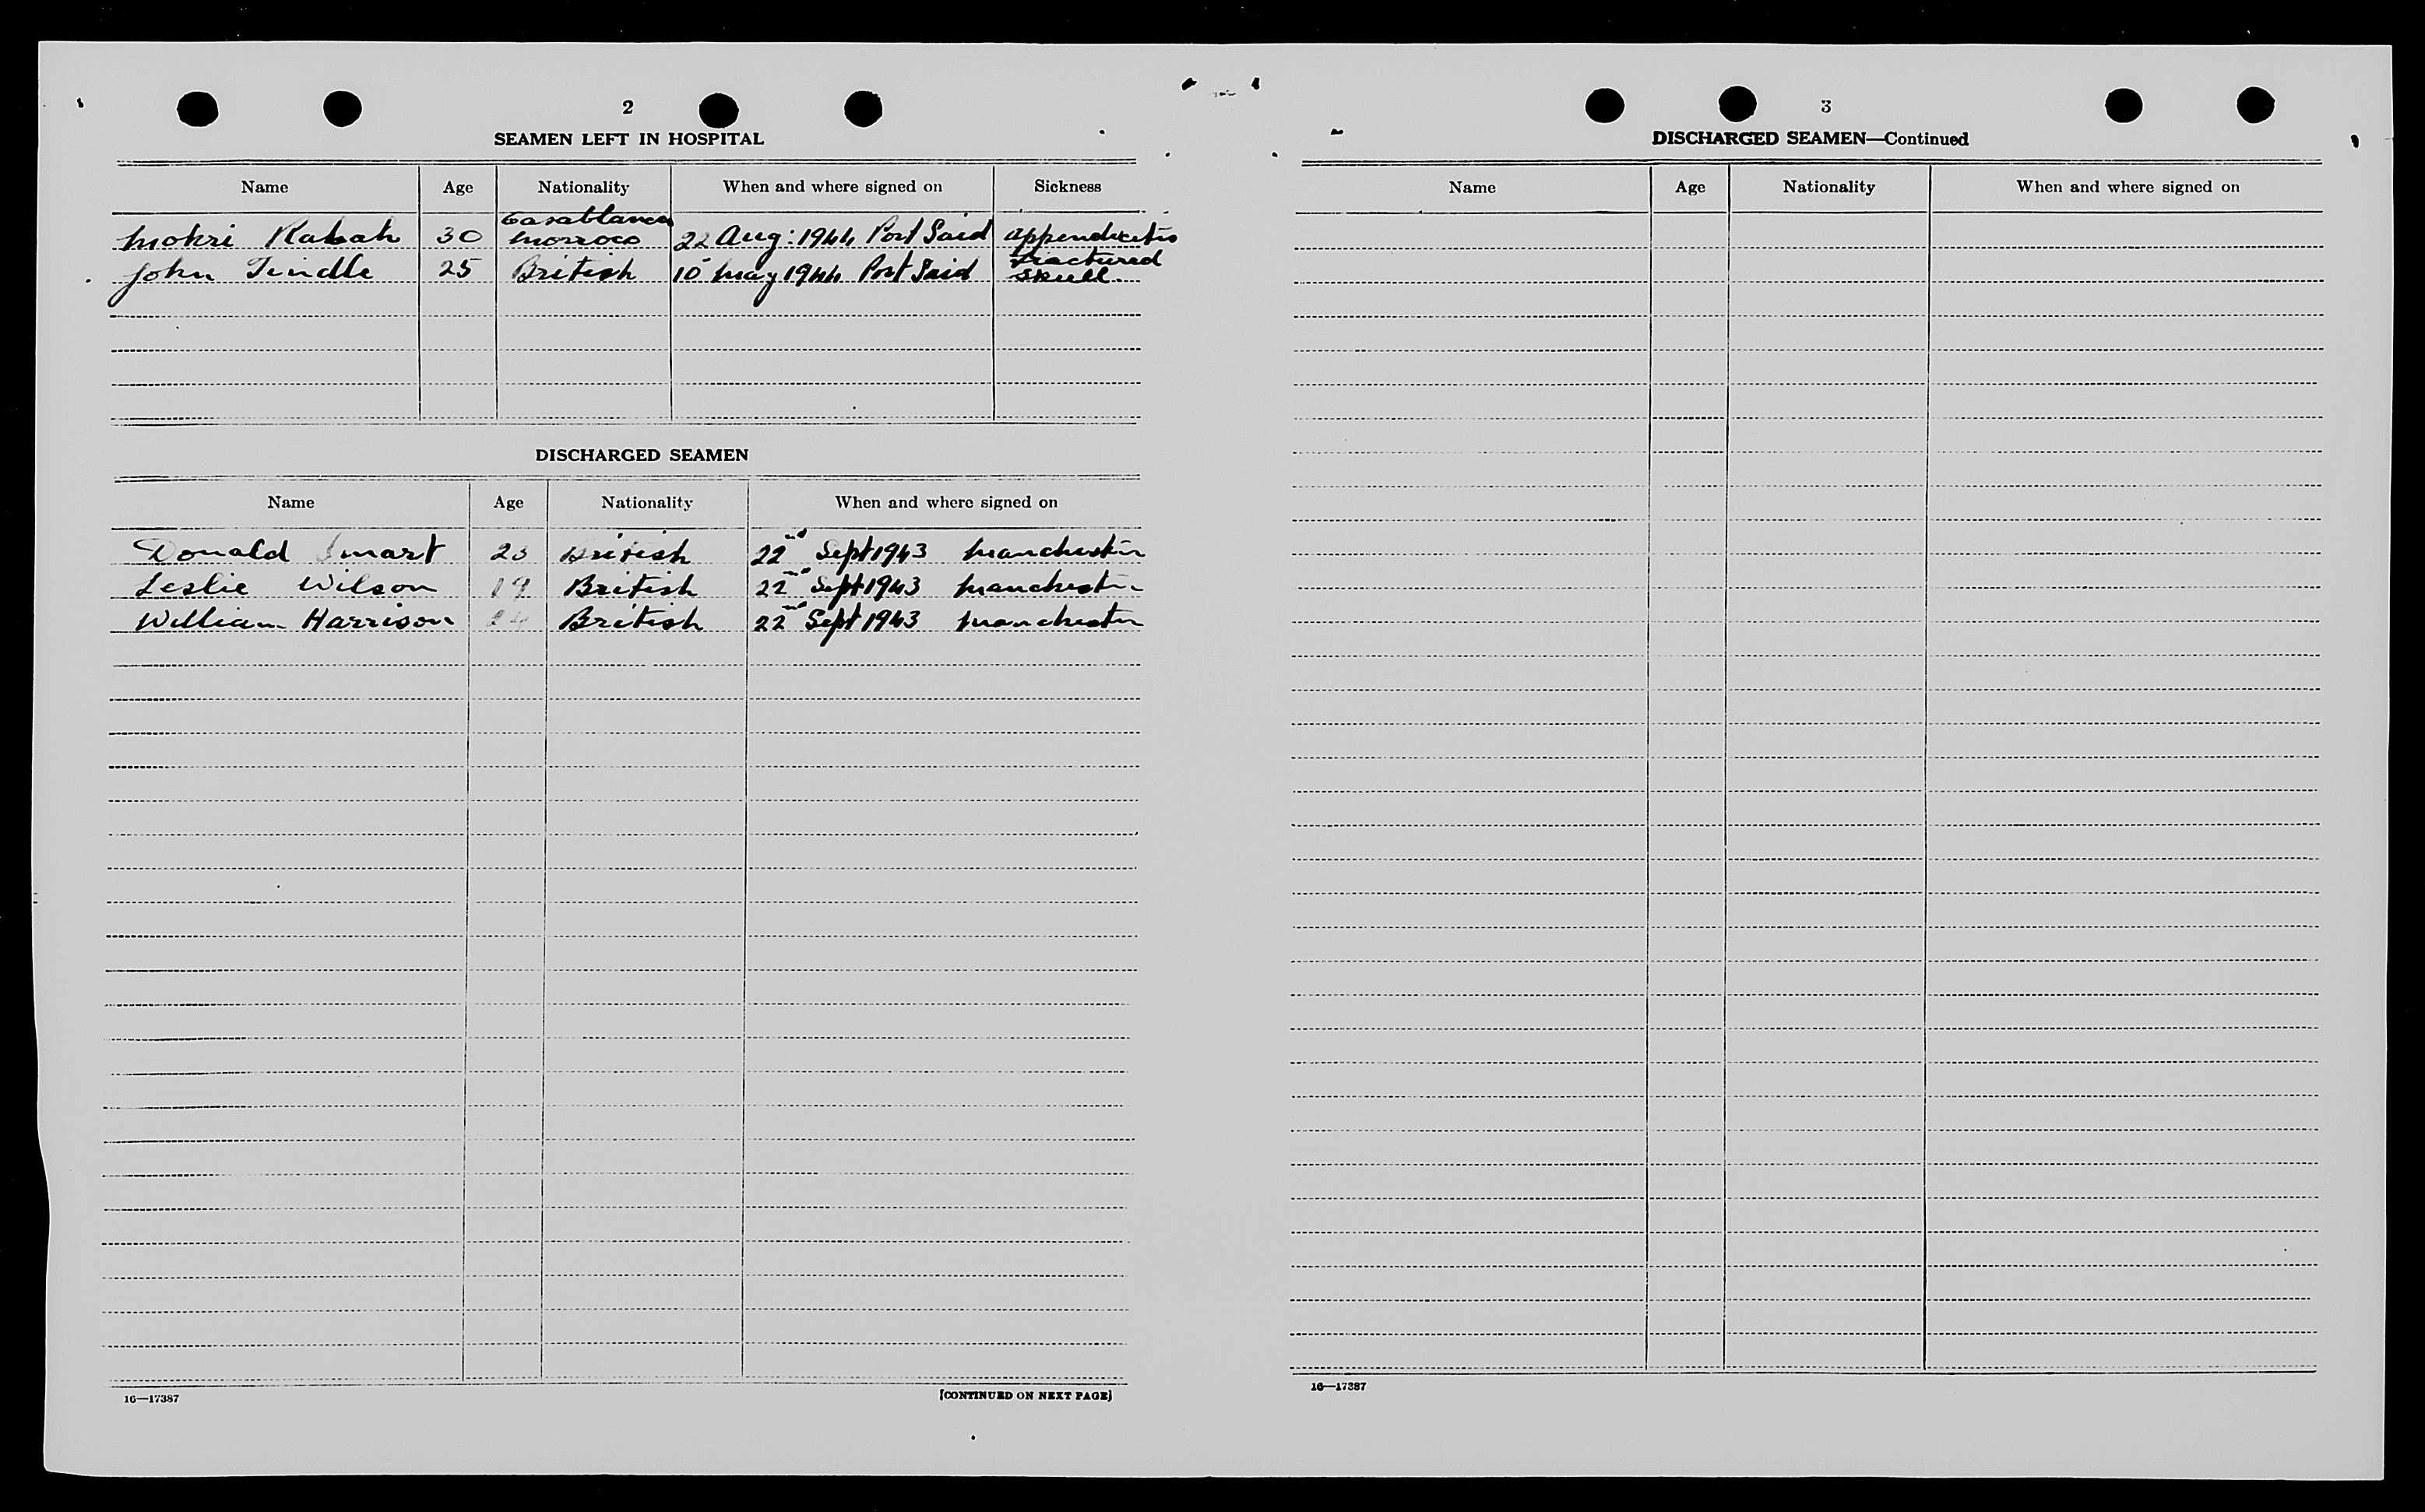 2
SEAMEN LEFT IN HOSPITAL
Name Age Nationality When and where signed on Sickness
Mokri Rabah 30 Casablanca Morroco 22 Aug: 1944 Port Said appendicitis
John Tindle 25 British 10 May 1944 Port Said Fractured Skull.
DISCHARGED SEAMEN
Name Age Nationality When and where signed on
Donald Smart British 22nd Sept 1943 Manchester
Leslie Wilson 19 British 22nd Sept 1943 Manchester
William Harrison 24 British 22nd Sept 1943 Manchester
16—17387
[CONTINUED ON NEXT PAGE]
3
DISCHARGED SEAMEN—Continued
Name Age Nationality When and where signed on
16—17387